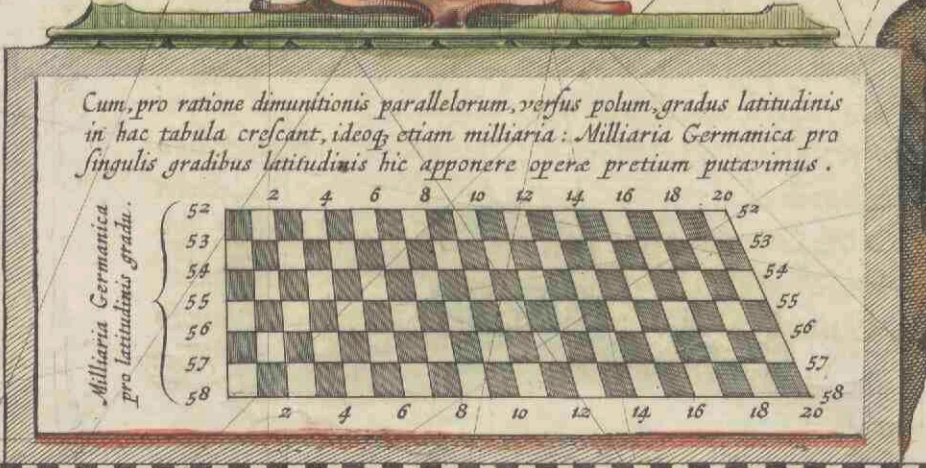 Cum, pro ratione dimunitionis parallelorum, verſus polum, gradus latitudinis
in hac tabula creſcant, ideoqꝫ etiam milliaria : Milliaria Germanica pro
ſingulis gradibus latitudinis hic apponere operæ pretium putavimus .
2 4 6 8 10 12 14 16 18 20
Milliaria Germanica
pro latitudinis gradu.
52 52
53 53
54 54
55 55
56 56
57 57
58 58
2 4 6 8 10 12 14 16 18 20